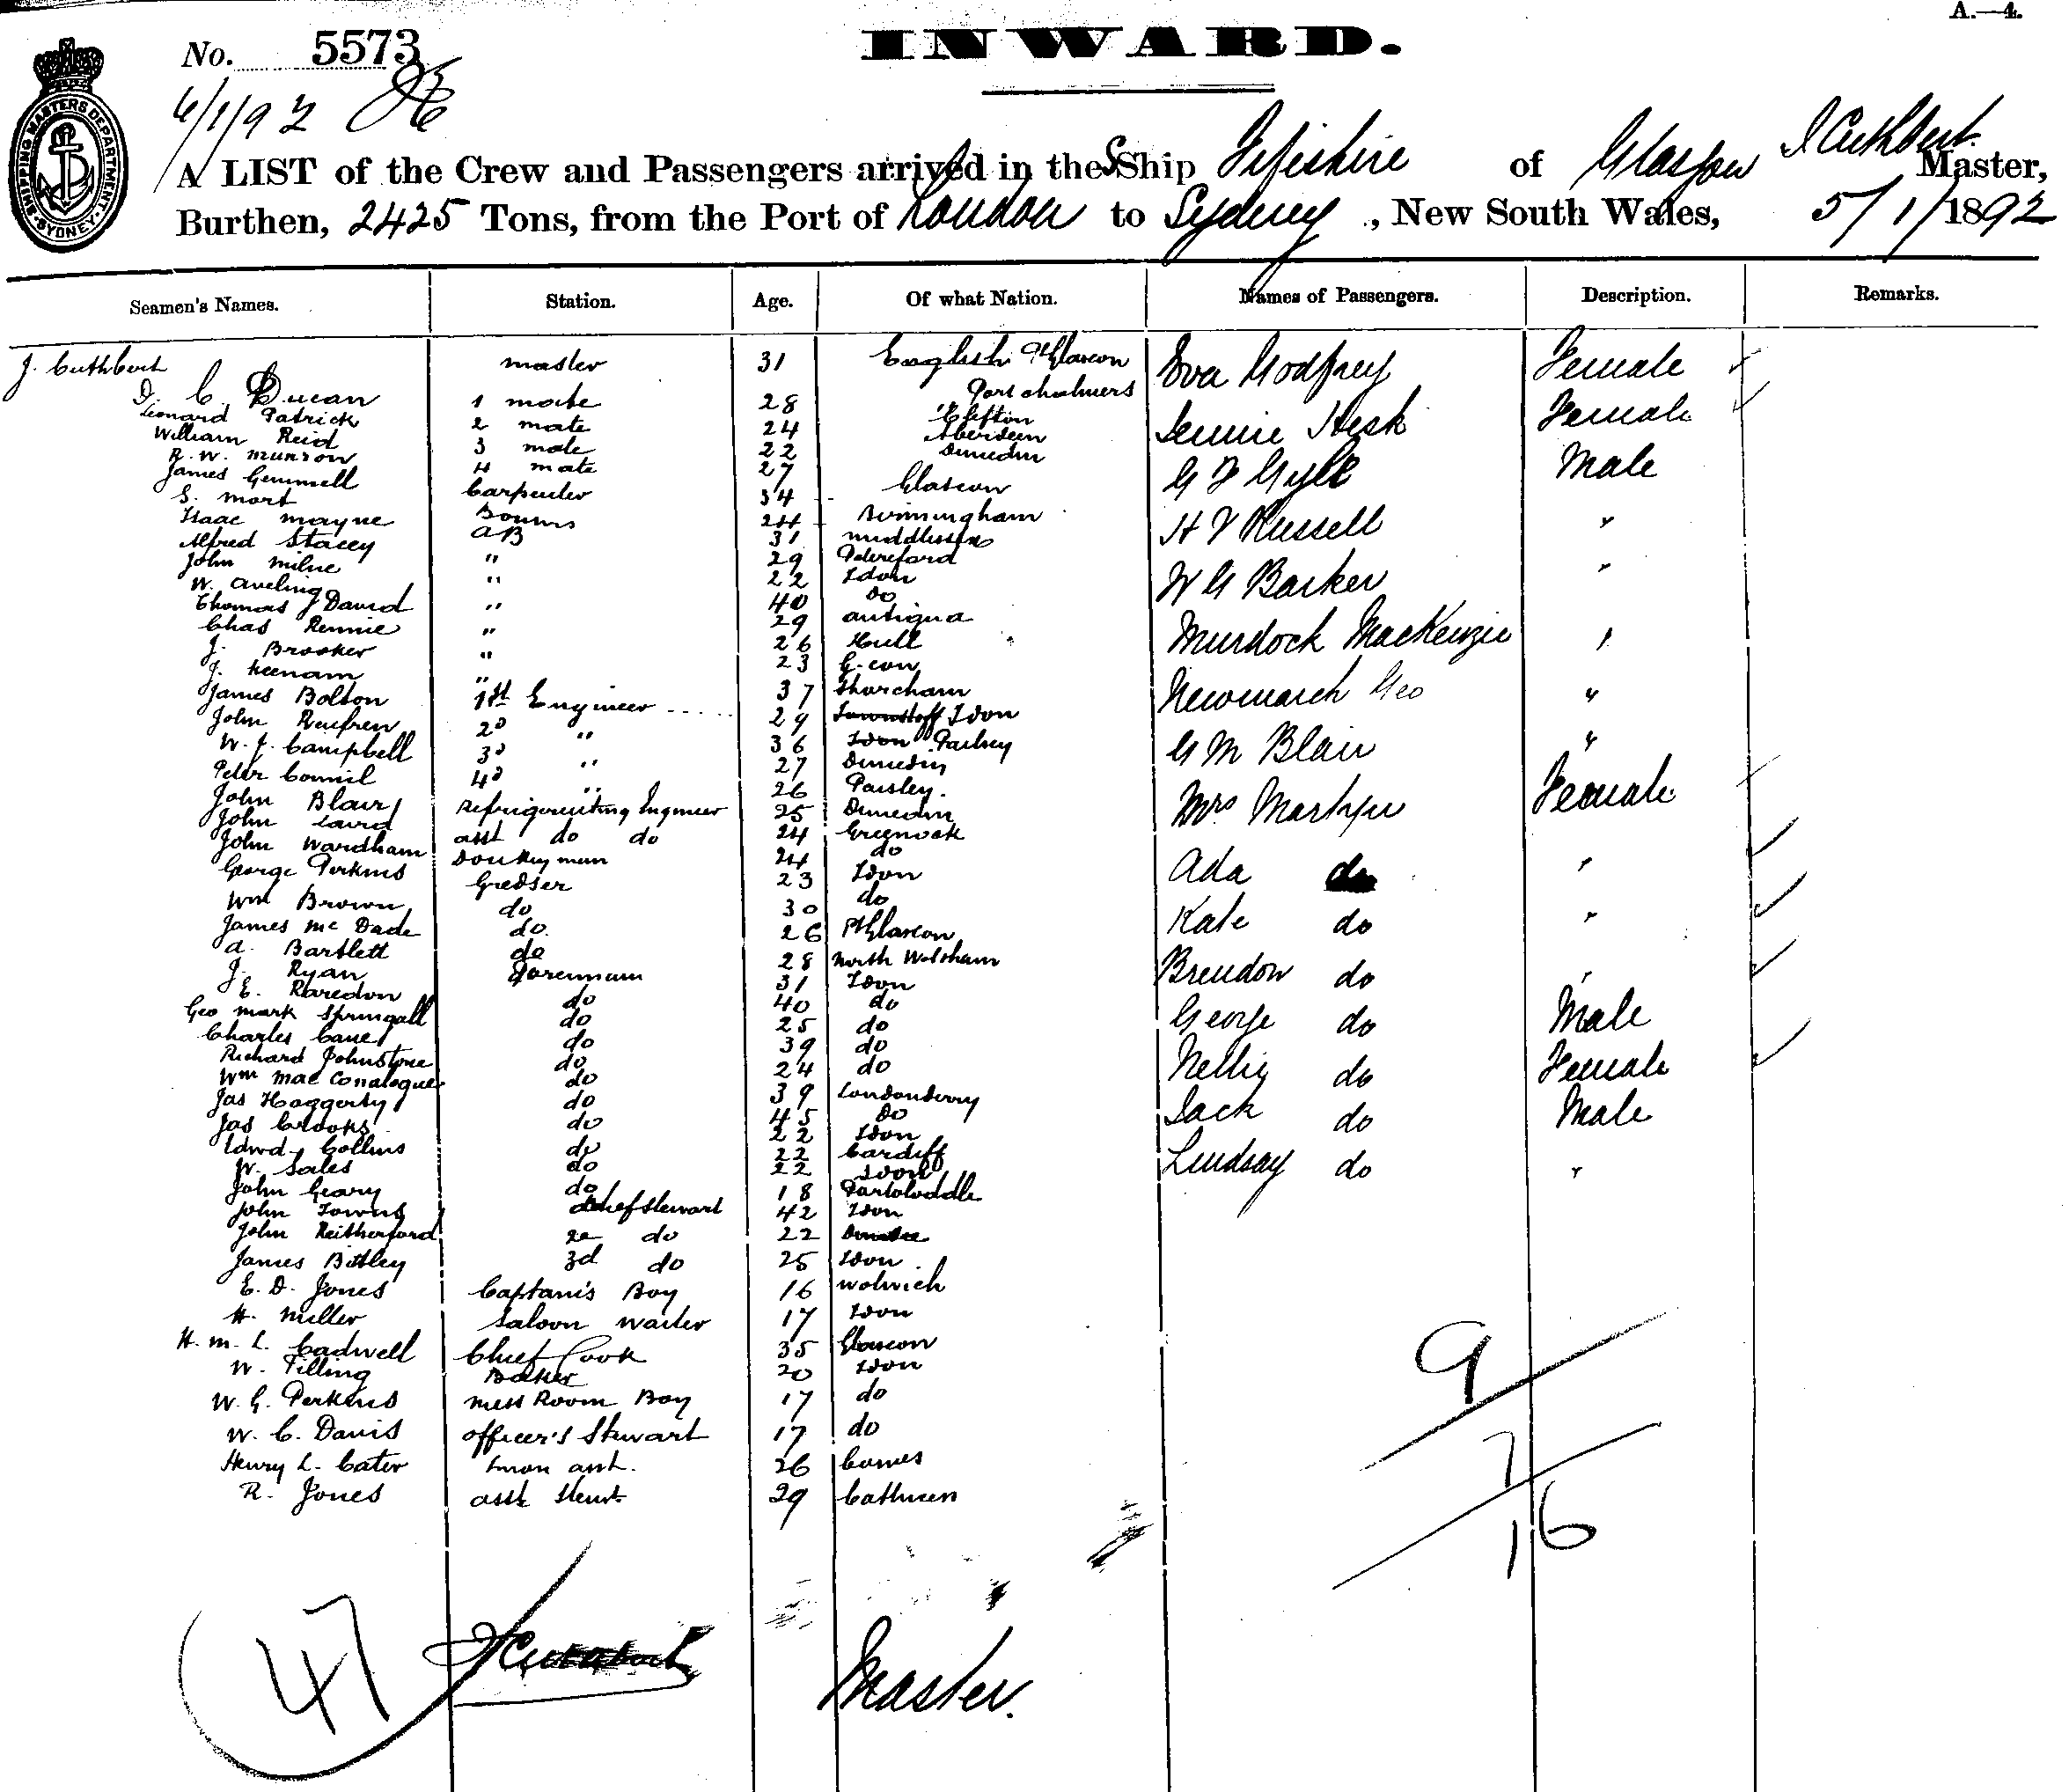 A.—4.
No. 5573
INWARD.
6/1/92
SHIPPING MASTERS DEPARTMENT. SYDNEY.
A LIST of the Crew and Passengers arrived in the S Ship Fifeshire of Glasgow J Cuthbert Master,
Burthen, 2425 Tons, from the Port of London to Sydney, New South Wales, 5/1/1892
Seamen's Names. Station. Age. Of what Nation. Names of Passengers. Description. Remarks.
J. Cuthbert master 31 English Eva Godfrey Female
D. C. Ducan 1 mate 28 Port chalmers
Leonard Patrick 2 mate 24 Clifton Jennie Hesk Female
William Reid 3 mate 22 Aberdeen
R. W. Munson 4 mate 27 Dunedin G F Gyll Male
James Gemmell Carpenter 34 Glascow
S. Mort 24 Birmingham H V Russell "
Isaac Mayne AB 31 Middlessex
Alfred Stacey " 29
John Milne " 22 Ldon W G Barker "
W. Aveling " 40 Do
Thomas J David " 29 antigua
Chas Rennie " 26 Hull Murdock MacKenzie "
J. Brooker " 23 G-cow
J. Keenam " 37 Shorcham Newmarch Geo "
James Bolton 1st Engineer 29 Ldon
John Renfren 2d " 36 G M Blair "
W. J. Campbell 3d " 27 Dunedin
Peter Connil 4d " 26 Paisley.
John Blair Refrigerating Engineer 25 Dunedin Mrs Martyn Female
John Laird asst do do 24 Greenock
John Wardham Donkeyman 24 do
George Perkins Greaser 23 Ldon Ada do "
Wm Brown do 30 do
James Mc Dade do. 26 Pt Glascow Kate do "
A. Bartlett do 28 North Walsham
J. Ryan 31 Ldon Brendon do "
E. Raredon do 40 do
Geo Mark Springall do 25 do George do Male
Charles Cane do 39 do
Richard Johnstone do 24 do Nellie do Female
Wm Mac Conalogue do 39 Londonderry
Jas Haggerty do 45 Do Jack do Male
Jas Crooks do 22 Ldon
Edwd Collins do 22 Cardiff
W. Sales do 22 Ldon Lindsay do "
John Geary do 18
John Towns Chief Stewart 42 Ldon
John Reitherford 2e do 22 Dundee
James Bitley 3d do 25 Ldon
E. D. Jones Captain's Boy 16 Wolwich
H. Miller Saloon Waiter 17 Ldon
H. M. L. Cadwell Chief Cook 35 Glascow
W. Tilling Baker 20 Ldon
W. G. Perkins Mess Room Boy 17 do
W. C. Davis officer's Stewart 17 do
Henry L. Cater asst. 26 Cowes
R. Jones asst Stewt. 29
9
7
16
47 J Cuthbert Master.